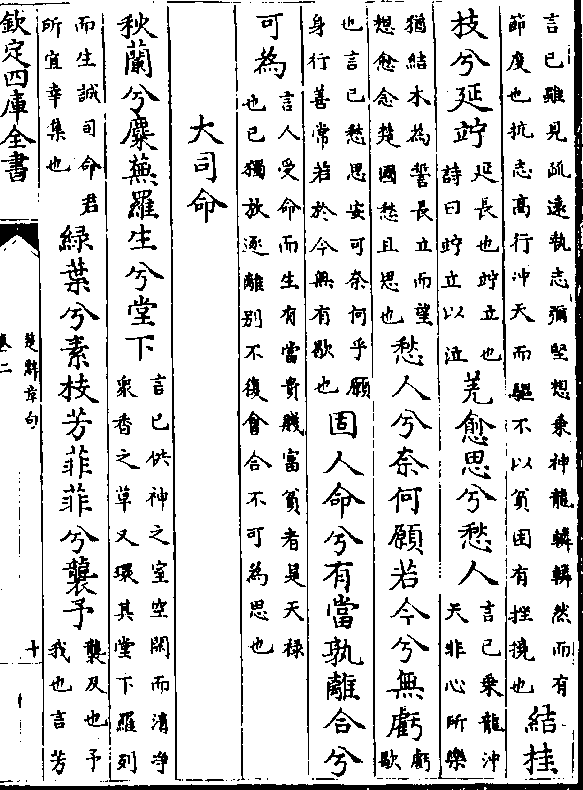 言已雖見疏遠執志彌堅想乘神龍轔轔然而有
節度也抗志高行沖天而驅不以貧困有挫撓也
結桂
枝兮延竚
延長也竚立也
詩曰竚立以泣
羌愈思兮愁人
言已乘龍沖
天非心所樂
猶結木為誓長立而望
想愈念楚國愁且思也
愁人兮奈何願若今兮無虧
虧
歇
也言已愁思安可奈何乎願
身行善常若於今無有歇也
固人命兮有當孰離合兮
可為
言人受命而生有當貴賤富貧者是天禄
也已獨放逐離別不復會合不可為思也
大司命
秋蘭兮麋蕪羅生兮堂下
言已供神之室空閑而清浄
衆香之草又環其堂下羅列
而生誠司命君
所宜幸集也
緑葉兮素枝芳菲菲兮襲予
襲及也予
我也言芳
欽定四庫全書
楚辭章句
卷二
十